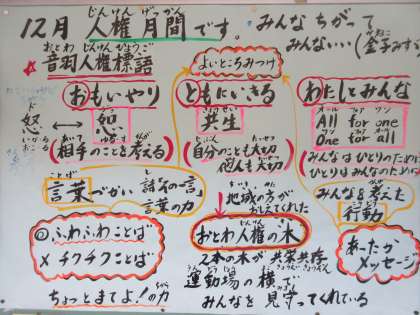 12月 人権月間です。
じんけん げっかん
みんな ちがって
みんないい(金子みすゞ
おとわ じんけんひょうご
音羽人権標語
よいところみつけ
おもいやり
ともにいきる
わたしとみんな
怒 ↔ 恕
(相手のことを考える)
共生
(自分のことも大切
他人も大切)
オール フォア ワン
All for one
One for all
(みんなはひとりのため
ひとりはみんなのため
ことば
言葉づかい
言葉の力
地域の方が
おしえてくれた
みんなを考えた
行動
◎ふわふわことば
× チクチクことば
ちょっとまてよ!の力
おとわ人権の木
2本の木が 共栄共存
きょうえい きょうぞん
運動場の横で
みんなを 見守ってくれている
あったか
メッセージ